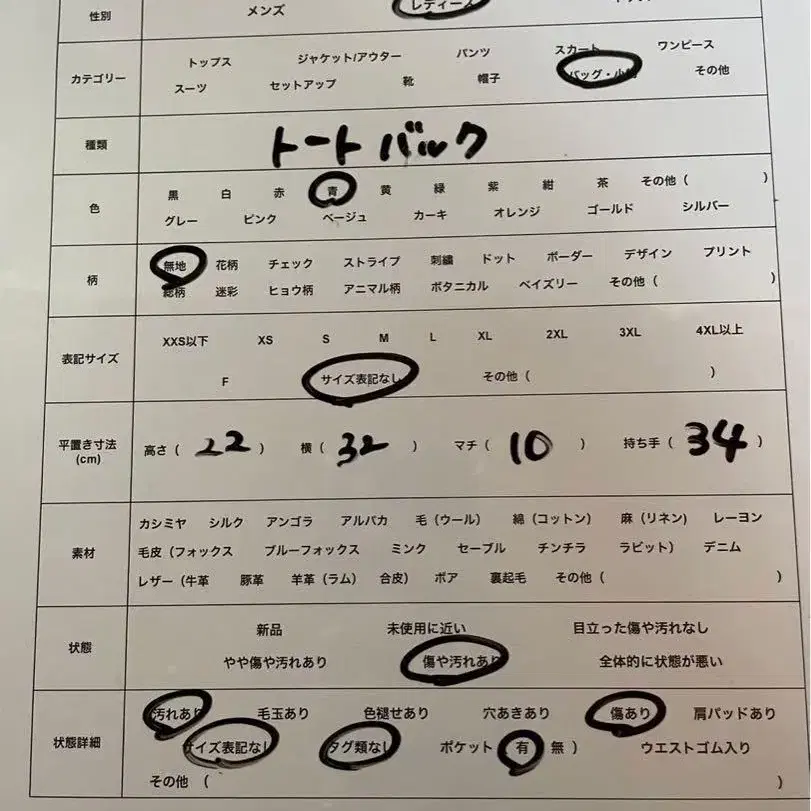 性別 メンズ レディース
カテゴリー トップス ジャケット/アウター パンツ スカート ワンピース
スーツ セットアップ 靴 帽子 バッグ・小物 その他
種類 トートバック
色 黒 白 赤 青 黄 緑 紫 紺 茶 その他 ( )
グレー ピンク ベージュ カーキ オレンジ ゴールド シルバー
柄 無地 花柄 チェック ストライプ 刺繍 ドット ボーダー デザイン プリント
総柄 迷彩 ヒョウ柄 アニマル柄 ボタニカル ペイズリー その他 ( )
表記サイズ XXS以下 XS S M L XL 2XL 3XL 4XL以上
F サイズ表記なし その他 ( )
平置き寸法 (cm) 高さ ( 22 ) 横 ( 32 ) マチ ( 10 ) 持ち手 ( 34 )
素材 カシミヤ シルク アンゴラ アルパカ 毛 (ウール) 綿 (コットン) 麻 (リネン) レーヨン
毛皮 (フォックス ブルーフォックス ミンク セーブル チンチラ ラビット) デニム
レザー (牛革 豚革 羊革 (ラム) 合皮) ボア 裏起毛 その他 ( )
状態 新品 未使用に近い 目立った傷や汚れなし
やや傷や汚れあり 傷や汚れあり 全体的に状態が悪い
状態詳細 汚れあり 毛玉あり 色褪せあり 穴あきあり 傷あり 肩パッドあり
サイズ表記なし タグ類なし ポケット 有 無 ) ウエストゴム入り
その他 ( )